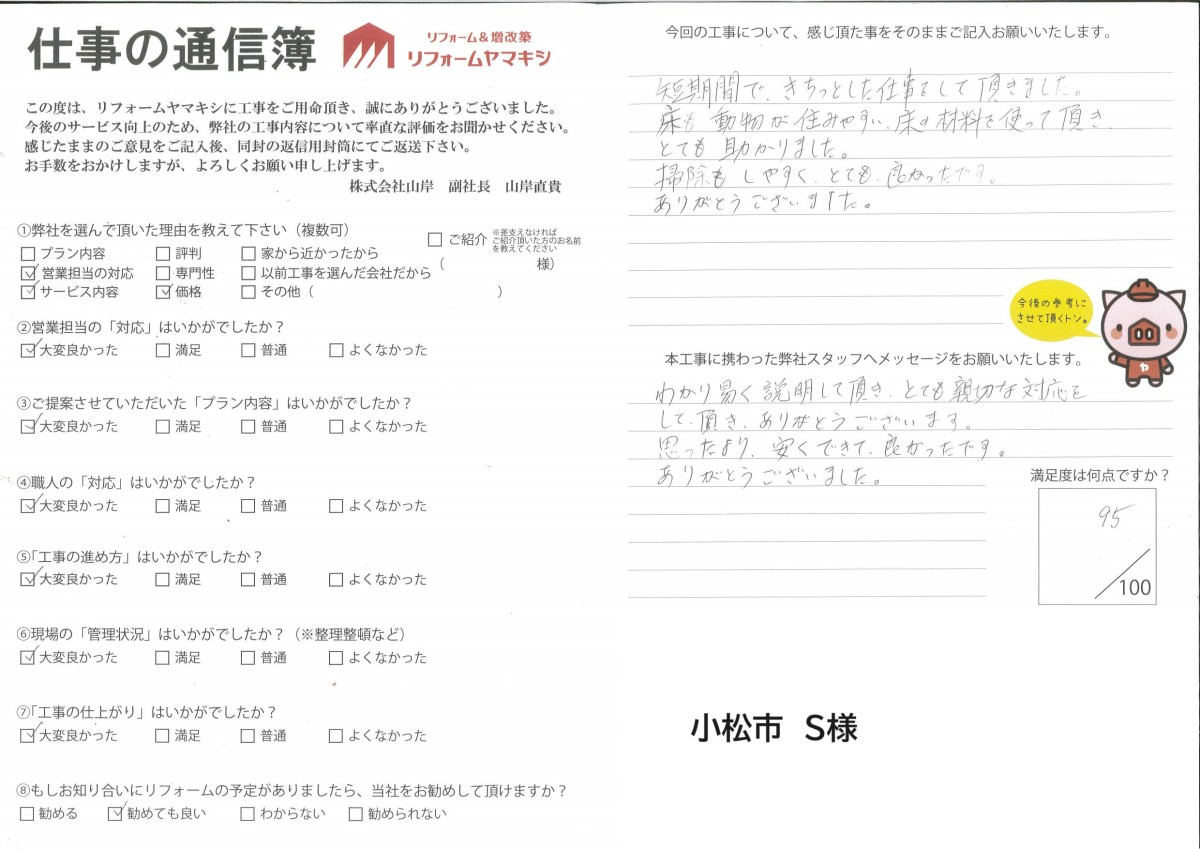 仕事の通信簿
リフォーム&増改築
リフォームヤマキシ
この度は、リフォームヤマキシに工事をご用命頂き、誠にありがとうございました。
今後のサービス向上のため、弊社の工事内容について率直な評価をお聞かせください。
感じたままのご意見をご記入後、同封の返信用封筒にてご返送下さい。
お手数をおかけしますが、よろしくお願い申し上げます。
株式会社山岸 副社長 山岸直貴
①弊社を選んで頂いた理由を教えて下さい（複数可）
□プラン内容 □評判 □家から近かったから
☑営業担当の対応 □専門性 □以前工事を選んだ会社だから
☑サービス内容 ☑価格 □その他（ ）
□ご紹介 ※差支えなければ
ご紹介頂いた方のお名前
を教えてください
（ 様）
②営業担当の「対応」はいかがでしたか？
☑大変良かった □満足 □普通 □よくなかった
③ご提案させていただいた「プラン内容」はいかがでしたか？
☑大変良かった □満足 □普通 □よくなかった
④職人の「対応」はいかがでしたか？
☑大変良かった □満足 □普通 □よくなかった
⑤「工事の進め方」はいかがでしたか？
☑大変良かった □満足 □普通 □よくなかった
⑥現場の「管理状況」はいかがでしたか？（※整理整頓など）
☑大変良かった □満足 □普通 □よくなかった
⑦「工事の仕上がり」はいかがでしたか？
☑大変良かった □満足 □普通 □よくなかった
⑧もしお知り合いにリフォームの予定がありましたら、当社をお勧めして頂けますか？
□勧める ☑勧めても良い □わからない □勧められない
今回の工事について、感じ頂た事をそのままご記入お願いいたします。
短期間で、きちっとした仕事をして頂きました。
床も動物が住みやすい、床の材料を使って頂き、
とても助かりました。
掃除もしやすく、とても、良かったです。
ありがとうございました。
今後の参考に
させて頂くトン。
ヤ
本工事に携わった弊社スタッフへメッセージをお願いいたします。
わかり易く説明して頂き、とても親切な対応を
して頂き、ありがとうございます。
思ったより、安くできて、良かったです。
ありがとうございました。
満足度は何点ですか？
95
/100
小松市 S様